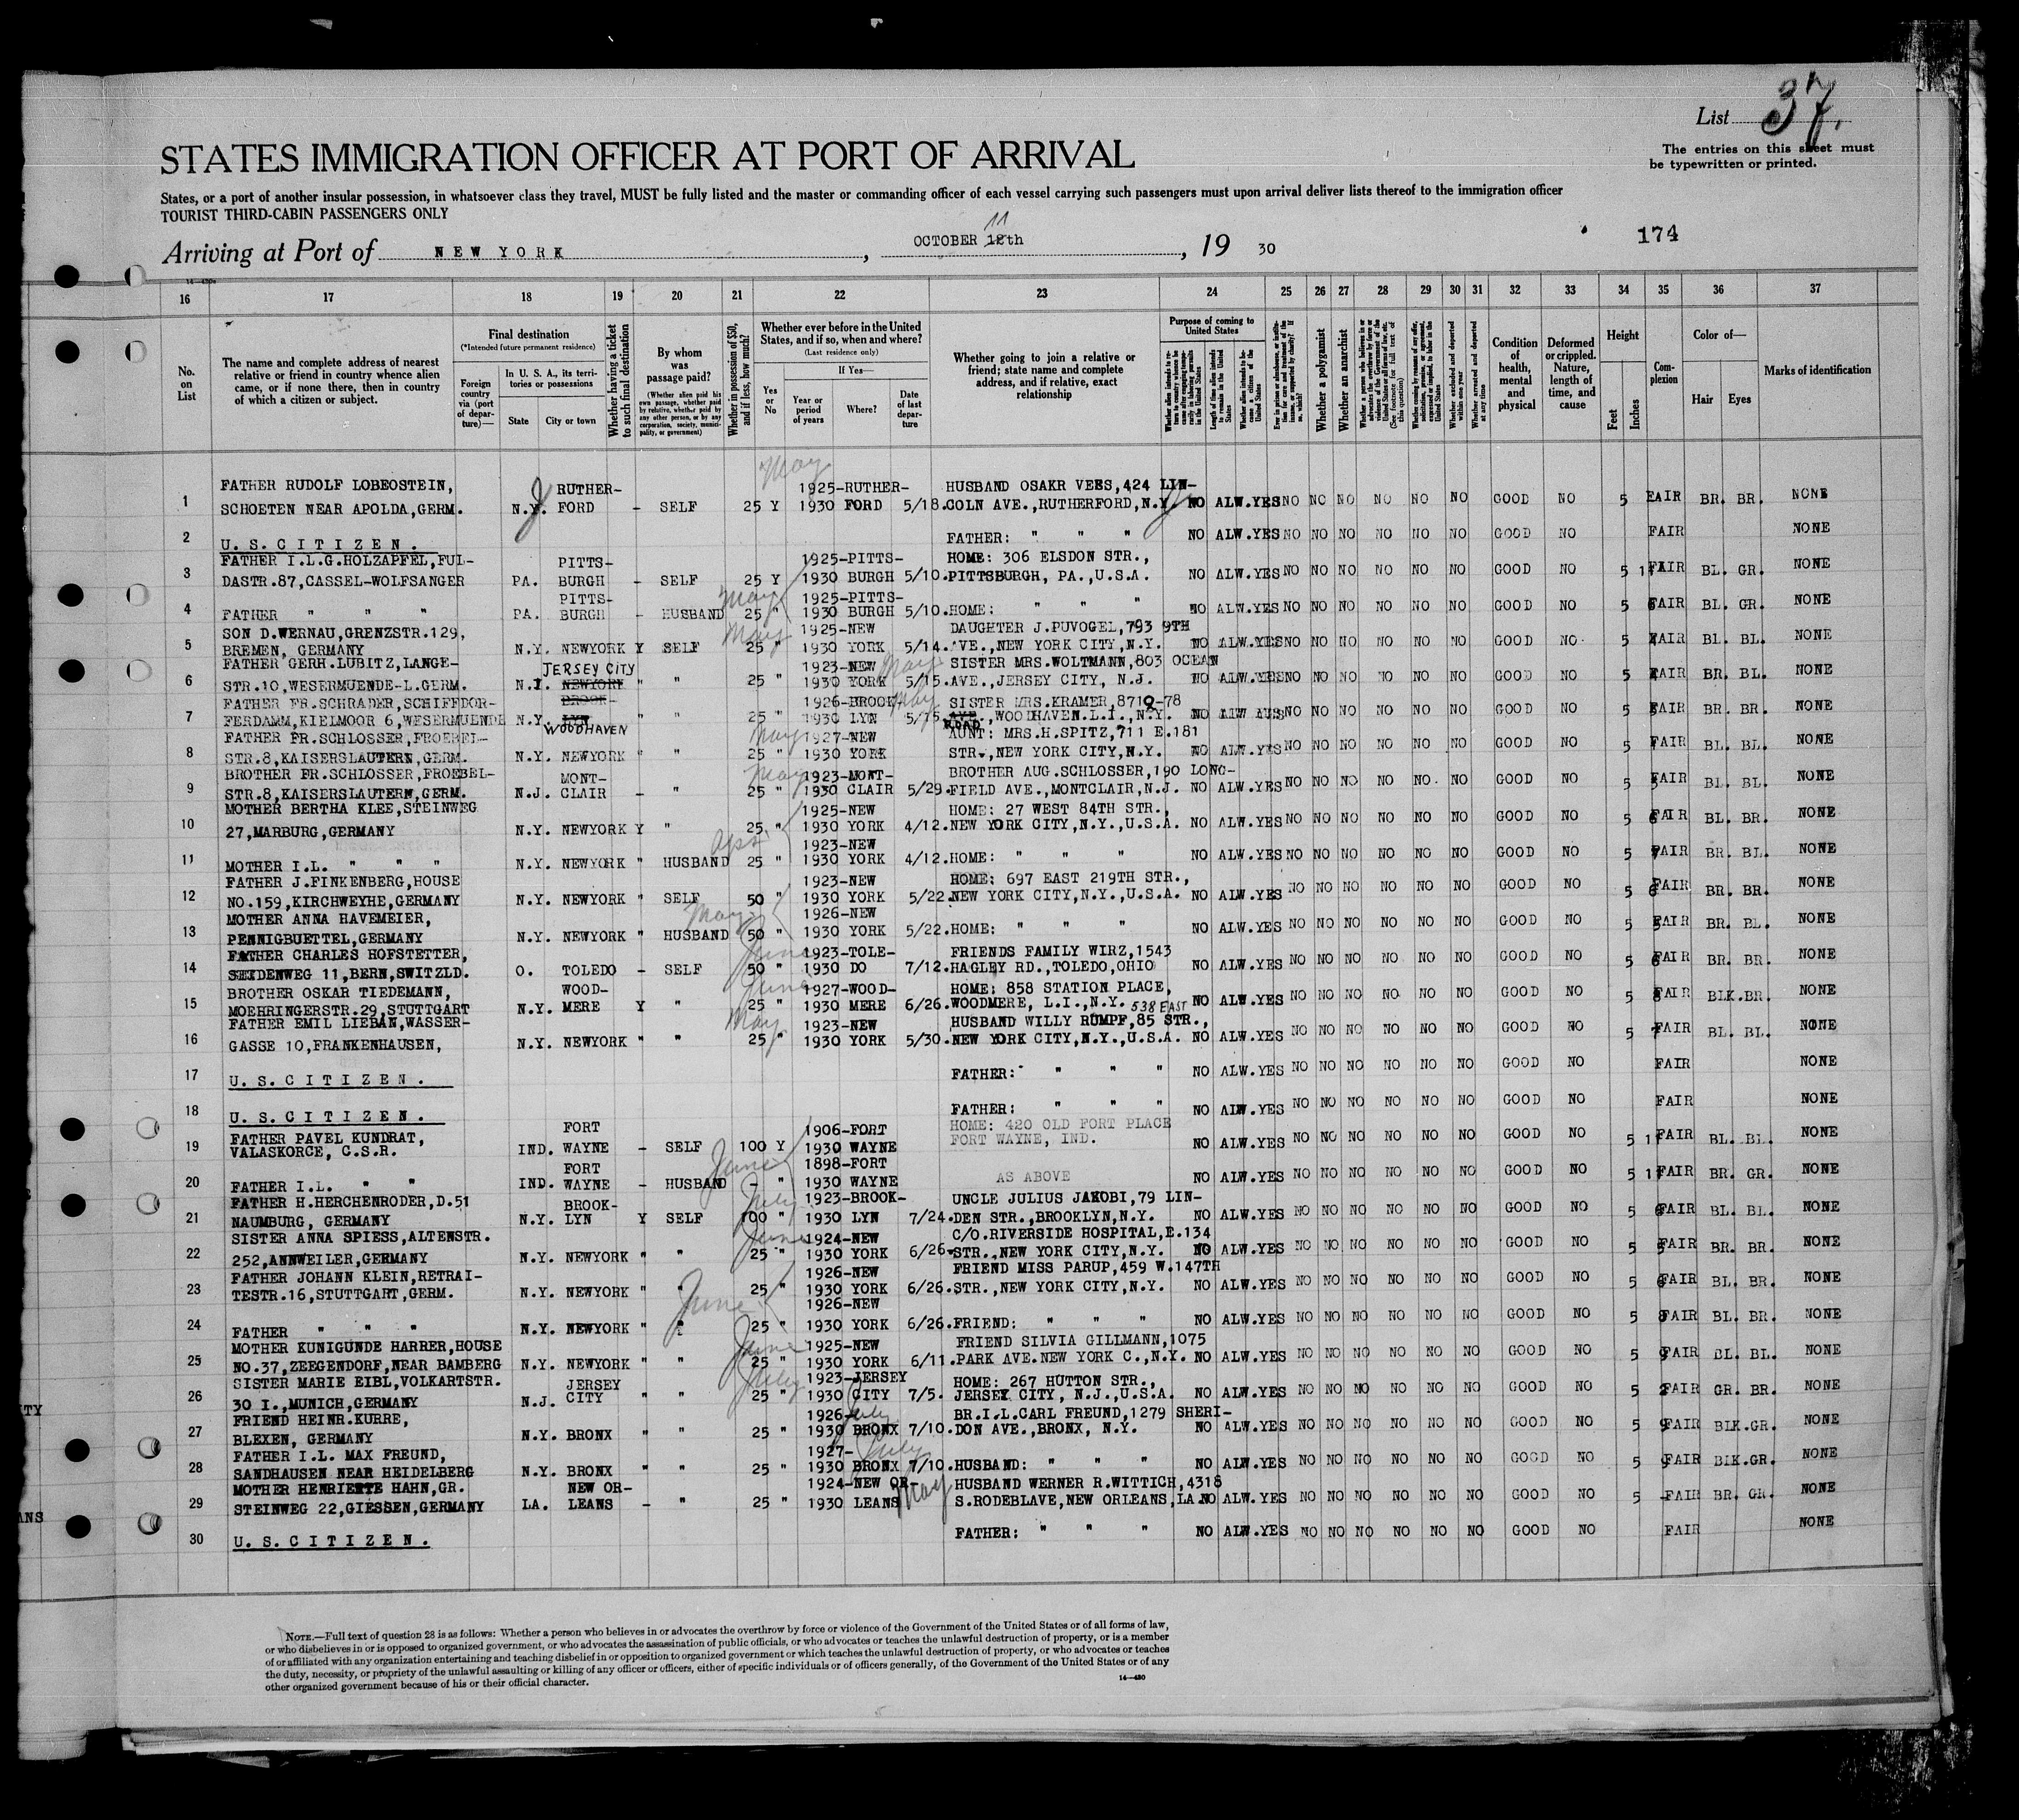 List 37.
The entries on this sheet must
be typewritten or printed.
STATES IMMIGRATION OFFICER AT PORT OF ARRIVAL
States, or a port of another insular possession, in whatsoever class they travel, MUST be fully listed and the master or commanding officer of each vessel carrying such passengers must upon arrival deliver lists thereof to the immigration officer
TOURIST THIRD-CABIN PASSENGERS ONLY
Arriving at Port of NEW YORK, OCTOBER 12th 11, 19 30
174
16 17 18 19 20 21 22 23 24 25 26 27 28 29 30 31 32 33 34 35 36 37
No. on List
The name and complete address of nearest relative or friend in country whence alien came, or if none there, then in country of which a citizen or subject.
Final destination
(*Intended future permanent residence)
Foreign country via (port of departure)—
In U. S. A., its territories or possessions
State
City or town
Whether having a ticket to such final destination
By whom was passage paid?
(Whether alien paid his own passage, whether paid by relative, whether paid by any other person, or by any corporation, society, municipality, or government)
Whether in possession of $50, and if less, how much?
Whether ever before in the United States, and if so, when and where?
(Last residence only)
Yes or No
If Yes—
Year or period of years
Where?
Date of last departure
Whether going to join a relative or friend; state name and complete address, and if relative, exact relationship
Purpose of coming to United States
Length of time alien intends to remain in the United States
Whether alien intends to become a citizen of the United States
Whether a polygamist
Whether an anarchist
Whether excluded and deported within one year
Whether arrested and deported at any time
Condition of health, mental and physical
Deformed or crippled. Nature, length of time, and cause
Height
Feet
Inches
Complexion
Color of—
Hair
Eyes
Marks of identification
May
FATHER RUDOLF LOBEOSTEIN, RUTHER- 1925-RUTHER- HUSBAND OSAKR VEES,424 LIN-
1 SCHOETEN NEAR APOLDA,GERM. N.Y. J FORD - SELF 25 Y 1930 FORD 5/18. COLN AVE.,RUTHERFORD,N.Y. J NO ALW. YES NO NO NO NO NO NO GOOD NO 5 FAIR BR. BR. NONE
2 U.S.CITIZEN. FATHER: " " " NO ALW. YES NO NO NO NO NO NO GOOD NO FAIR NONE
FATHER I.L.G.HOLZAPFEL,FUL- PITTS- 1925-PITTS- HOME: 306 ELSDON STR.,
3 DASTR.87,CASSEL-WOLFSANGER PA. BURGH - SELF 25 Y 1930 BURGH 5/10. PITTSBURGH, PA.,U.S.A. NO ALW. YES NO NO NO NO NO NO GOOD NO 5 FAIR BL. GR. NONE
PITTS- May 1925-PITTS-
4 FATHER " " " PA. BURGH - HUSBAND 25 " 1930 BURGH 5/10. HOME: " " " NO ALW. YES NO NO NO NO NO NO GOOD NO 5 FAIR BL. GR. NONE
SON D.WERNAU,GRENZSTR.129, May 1925-NEW DAUGHTER J.PUVOGEL,793 9TH
5 BREMEN, GERMANY N.Y. NEWYORK Y SELF 25 " 1930 YORK 5/14. AVE.,NEW YORK CITY,N.Y. NO ALW. YES NO NO NO NO NO NO GOOD NO 5 FAIR BL. BL. NONE
FATHER GERH.LUBITZ,LANGE- JERSEY CITY 1923-NEW May SISTER MRS.WOLTMANN,803 OCEAN
6 STR.10,WESERMUENDE-L.GERM. N.J. NEWYORK " " 25 " 1930 YORK 5/15. AVE.,JERSEY CITY, N.J. NO ALW. YES NO NO NO NO NO NO GOOD NO 5 FAIR BR. BL. NONE
FATHER FR.SCHRADER,SCHIFFDOR- BROOK- 1926-BROOK- May SISTER MRS.KRAMER,8710-78
7 FERDAMM,KIELMOOR 6,WESERMUENDE N.Y. LYN WOODHAVEN " " 25 " 1930 LYN 5/15. AVE. ROAD,WOODHAVEN.L.I.,N.Y. NO ALW NO NO NO NO NO NO GOOD NO 5 FAIR BR. BR. NONE
FATHER FR.SCHLOSSER,FROEBEL- May 1927-NEW AUNT: MRS.H.SPITZ,711 E.181
8 STR.8,KAISERSLAUTERN,GERM. N.Y. NEWYORK " " 25 " 1930 YORK STR.,NEW YORK CITY,N.Y. NO ALW. YES NO NO NO NO NO NO GOOD NO 5 FAIR BL. BL. NONE
BROTHER FR.SCHLOSSER,FROEBEL- MONT- May 1923-MONT- BROTHER AUG.SCHLOSSER,190 LONG-
9 STR.8,KAISERSLAUTERN,GERM. N.J. CLAIR - " 25 " 1930 CLAIR 5/29. FIELD AVE.,MONTCLAIR,N.J. NO ALW. YES NO NO NO NO NO NO GOOD NO 5 FAIR BL. BL. NONE
MOTHER BERTHA KLEE,STEINWEG 1925-NEW HOME: 27 WEST 84TH STR.,
10 27,MARBURG,GERMANY N.Y. NEWYORK Y " 25 " 1930 YORK 4/12. NEW YORK CITY,N.Y.,U.S.A. NO ALW. YES NO NO NO NO NO NO GOOD NO 5 FAIR BL. BR. NONE
1923-NEW
11 MOTHER I.L. " " " N.Y. NEWYORK " HUSBAND 25 " 1930 YORK 4/12. HOME: " " " NO ALW. YES NO NO NO NO NO NO GOOD NO 5 FAIR BR. BL. NONE
FATHER J.FINKENBERG,HOUSE 1923-NEW HOME: 697 EAST 219TH STR.,
12 NO.159,KIRCHWEYHE,GERMANY N.Y. NEWYORK " SELF 50 " 1930 YORK 5/22. NEW YORK CITY,N.Y.,U.S.A. NO ALW. YES NO NO NO NO NO NO GOOD NO 5 6 FAIR BR. BR. NONE
MOTHER ANNA HAVEMEIER, May 1926-NEW
13 PENNIGBUETTEL,GERMANY N.Y. NEWYORK " HUSBAND 50 " 1930 YORK 5/22. HOME: " " " NO ALW. YES NO NO NO NO NO NO GOOD NO 5 FAIR BR. BL. NONE
FATHER CHARLES HOFSTETTER, June 1923-TOLE- FRIENDS FAMILY WIRZ,1543
14 SEIDENWEG 11,BERN,SWITZLD. O. TOLEDO - SELF 50 " 1930 DO 7/12. HAGLEY RD.,TOLEDO,OHIO NO ALW. YES NO NO NO NO NO NO GOOD NO 5 FAIR BR. BR. NONE
BROTHER OSKAR TIEDEMANN, WOOD- June 1927-WOOD- HOME: 858 STATION PLACE,
15 MOEHRINGERSTR.29,STUTTGART N.Y. MERE Y " 25 " 1930 MERE 6/26. WOODMERE, L.I.,N.Y. 538 EAST NO ALW. YES NO NO NO NO NO NO GOOD NO 5 FAIR BLK.BR. NONE
FATHER EMIL LIEBAN,WASSER- May 1923-NEW HUSBAND WILLY RUMPF,85 STR.,
16 GASSE 10,FRANKENHAUSEN, N.Y. NEWYORK " " 25 " 1930 YORK 5/30. NEW YORK CITY,N.Y.,U.S.A. NO ALW. YES NO NO NO NO NO NO GOOD NO 5 FAIR BL. BL. NONE
17 U.S.CITIZEN. FATHER: " " " NO ALW. YES NO NO NO NO NO NO GOOD NO FAIR NONE
18 U.S.CITIZEN. FATHER: " " " NO ALW. YES NO NO NO NO NO NO GOOD NO FAIR NONE
FATHER PAVEL KUNDRAT, FORT 1906-FORT HOME: 420 OLD FORT PLACE
19 VALASKORCE, C.S.R. IND. WAYNE - SELF 100 Y 1930 WAYNE FORT WAYNE, IND. NO ALW. YES NO NO NO NO NO NO GOOD NO 5 FAIR BL. BL. NONE
FORT June 1898-FORT
20 FATHER I.L. " " IND. WAYNE - HUSBAND - " 1930 WAYNE AS ABOVE NO ALW. YES NO NO NO NO NO NO GOOD NO 5 FAIR BR. GR. NONE
FATHER H.HERCHENRODER,D.51 BROOK- July 1923-BROOK- UNCLE JULIUS JAKOBI,79 LIN-
21 NAUMBURG, GERMANY N.Y. LYN Y SELF 100 " 1930 LYN 7/24. DEN STR.,BROOKLYN,N.Y. NO ALW. YES NO NO NO NO NO NO GOOD NO 5 FAIR BL. BL. NONE
SISTER ANNA SPIESS,ALTENSTR. June 1924-NEW C/O.RIVERSIDE HOSPITAL,E.134
22 252,ANNWEILER,GERMANY N.Y. NEWYORK " " 25 " 1930 YORK 6/26. STR.,NEW YORK CITY,N.Y. NO ALW. YES NO NO NO NO NO NO GOOD NO 5 FAIR BR. BR. NONE
FATHER JOHANN KLEIN,RETRAI- 1926-NEW FRIEND MISS PARUP,459 W.147TH
23 TESTR.16,STUTTGART,GERM. N.Y. NEWYORK " " 25 " 1930 YORK 6/26. STR.,NEW YORK CITY,N.Y. NO ALW. YES NO NO NO NO NO NO GOOD NO 5 FAIR BL. BR. NONE
June 1926-NEW
24 FATHER " " " N.Y. NEWYORK " " 25 " 1930 YORK 6/26. FRIEND: " " " NO ALW. YES NO NO NO NO NO NO GOOD NO 5 FAIR BL. BR. NONE
MOTHER KUNIGUNDE HARRER,HOUSE June 1925-NEW FRIEND SILVIA GILLMANN,1075
25 NO.37,ZEEGENDORF,NEAR BAMBERG N.Y. NEWYORK " " 25 " 1930 YORK 6/11. PARK AVE.NEW YORK C.,N.Y. NO ALW. YES NO NO NO NO NO NO GOOD NO 5 FAIR BL. BL. NONE
SISTER MARIE EIBL,VOLKARTSTR. JERSEY July 1923-JERSEY HOME: 267 HUTTON STR.,
26 30 I.,MUNICH,GERMANY N.J. CITY " " 25 " 1930 CITY 7/5. JERSEY CITY, N.J.,U.S.A. NO ALW. YES NO NO NO NO NO NO GOOD NO 5 FAIR GR. BR. NONE
FRIEND HEINR.KURRE, 1926- July BR.I.L.CARL FREUND,1279 SHERI-
27 BLEXEN, GERMANY N.Y. BRONX " " 25 " 1930 BRONX 7/10. DON AVE.,BRONX, N.Y. NO ALW. YES NO NO NO NO NO NO GOOD NO 5 FAIR BLK.GR. NONE
FATHER I.L. MAX FREUND, 1927- July
28 SANDHAUSEN NEAR HEIDELBERG N.Y. BRONX " " 25 " 1930 BRONX 7/10. HUSBAND: " " " NO ALW. YES NO NO NO NO NO NO GOOD NO 5 FAIR BLK.GR. NONE
MOTHER HENRIETTE HAHN,GR. NEW OR- 1924-NEW OR- May HUSBAND WERNER R.WITTICH,4318
29 STEINWEG 22,GIESSEN,GERMANY LA. LEANS - " 25 " 1930 LEANS S.RODEBLAVE,NEW ORLEANS,LA. NO ALW. YES NO NO NO NO NO NO GOOD NO 5 - FAIR BR. GR. NONE
30 U.S.CITIZEN. FATHER: " " " NO ALW. YES NO NO NO NO NO NO GOOD NO FAIR NONE
NOTE.—Full text of question 28 is as follows: Whether a person who believes in or advocates the overthrow by force or violence of the Government of the United States or of all forms of law,
or who disbelieves in or is opposed to organized government, or who advocates the assassination of public officials, or who advocates or teaches the unlawful destruction of property, or is a member
of or affiliated with any organization entertaining and teaching disbelief in or opposition to organized government or which teaches the unlawful destruction of property, or who advocates or teaches
the duty, necessity, or propriety of the unlawful assaulting or killing of any officer or officers, either of specific individuals or of officers generally, of the Government of the United States or of any
other organized government because of his or their official character.
14—430